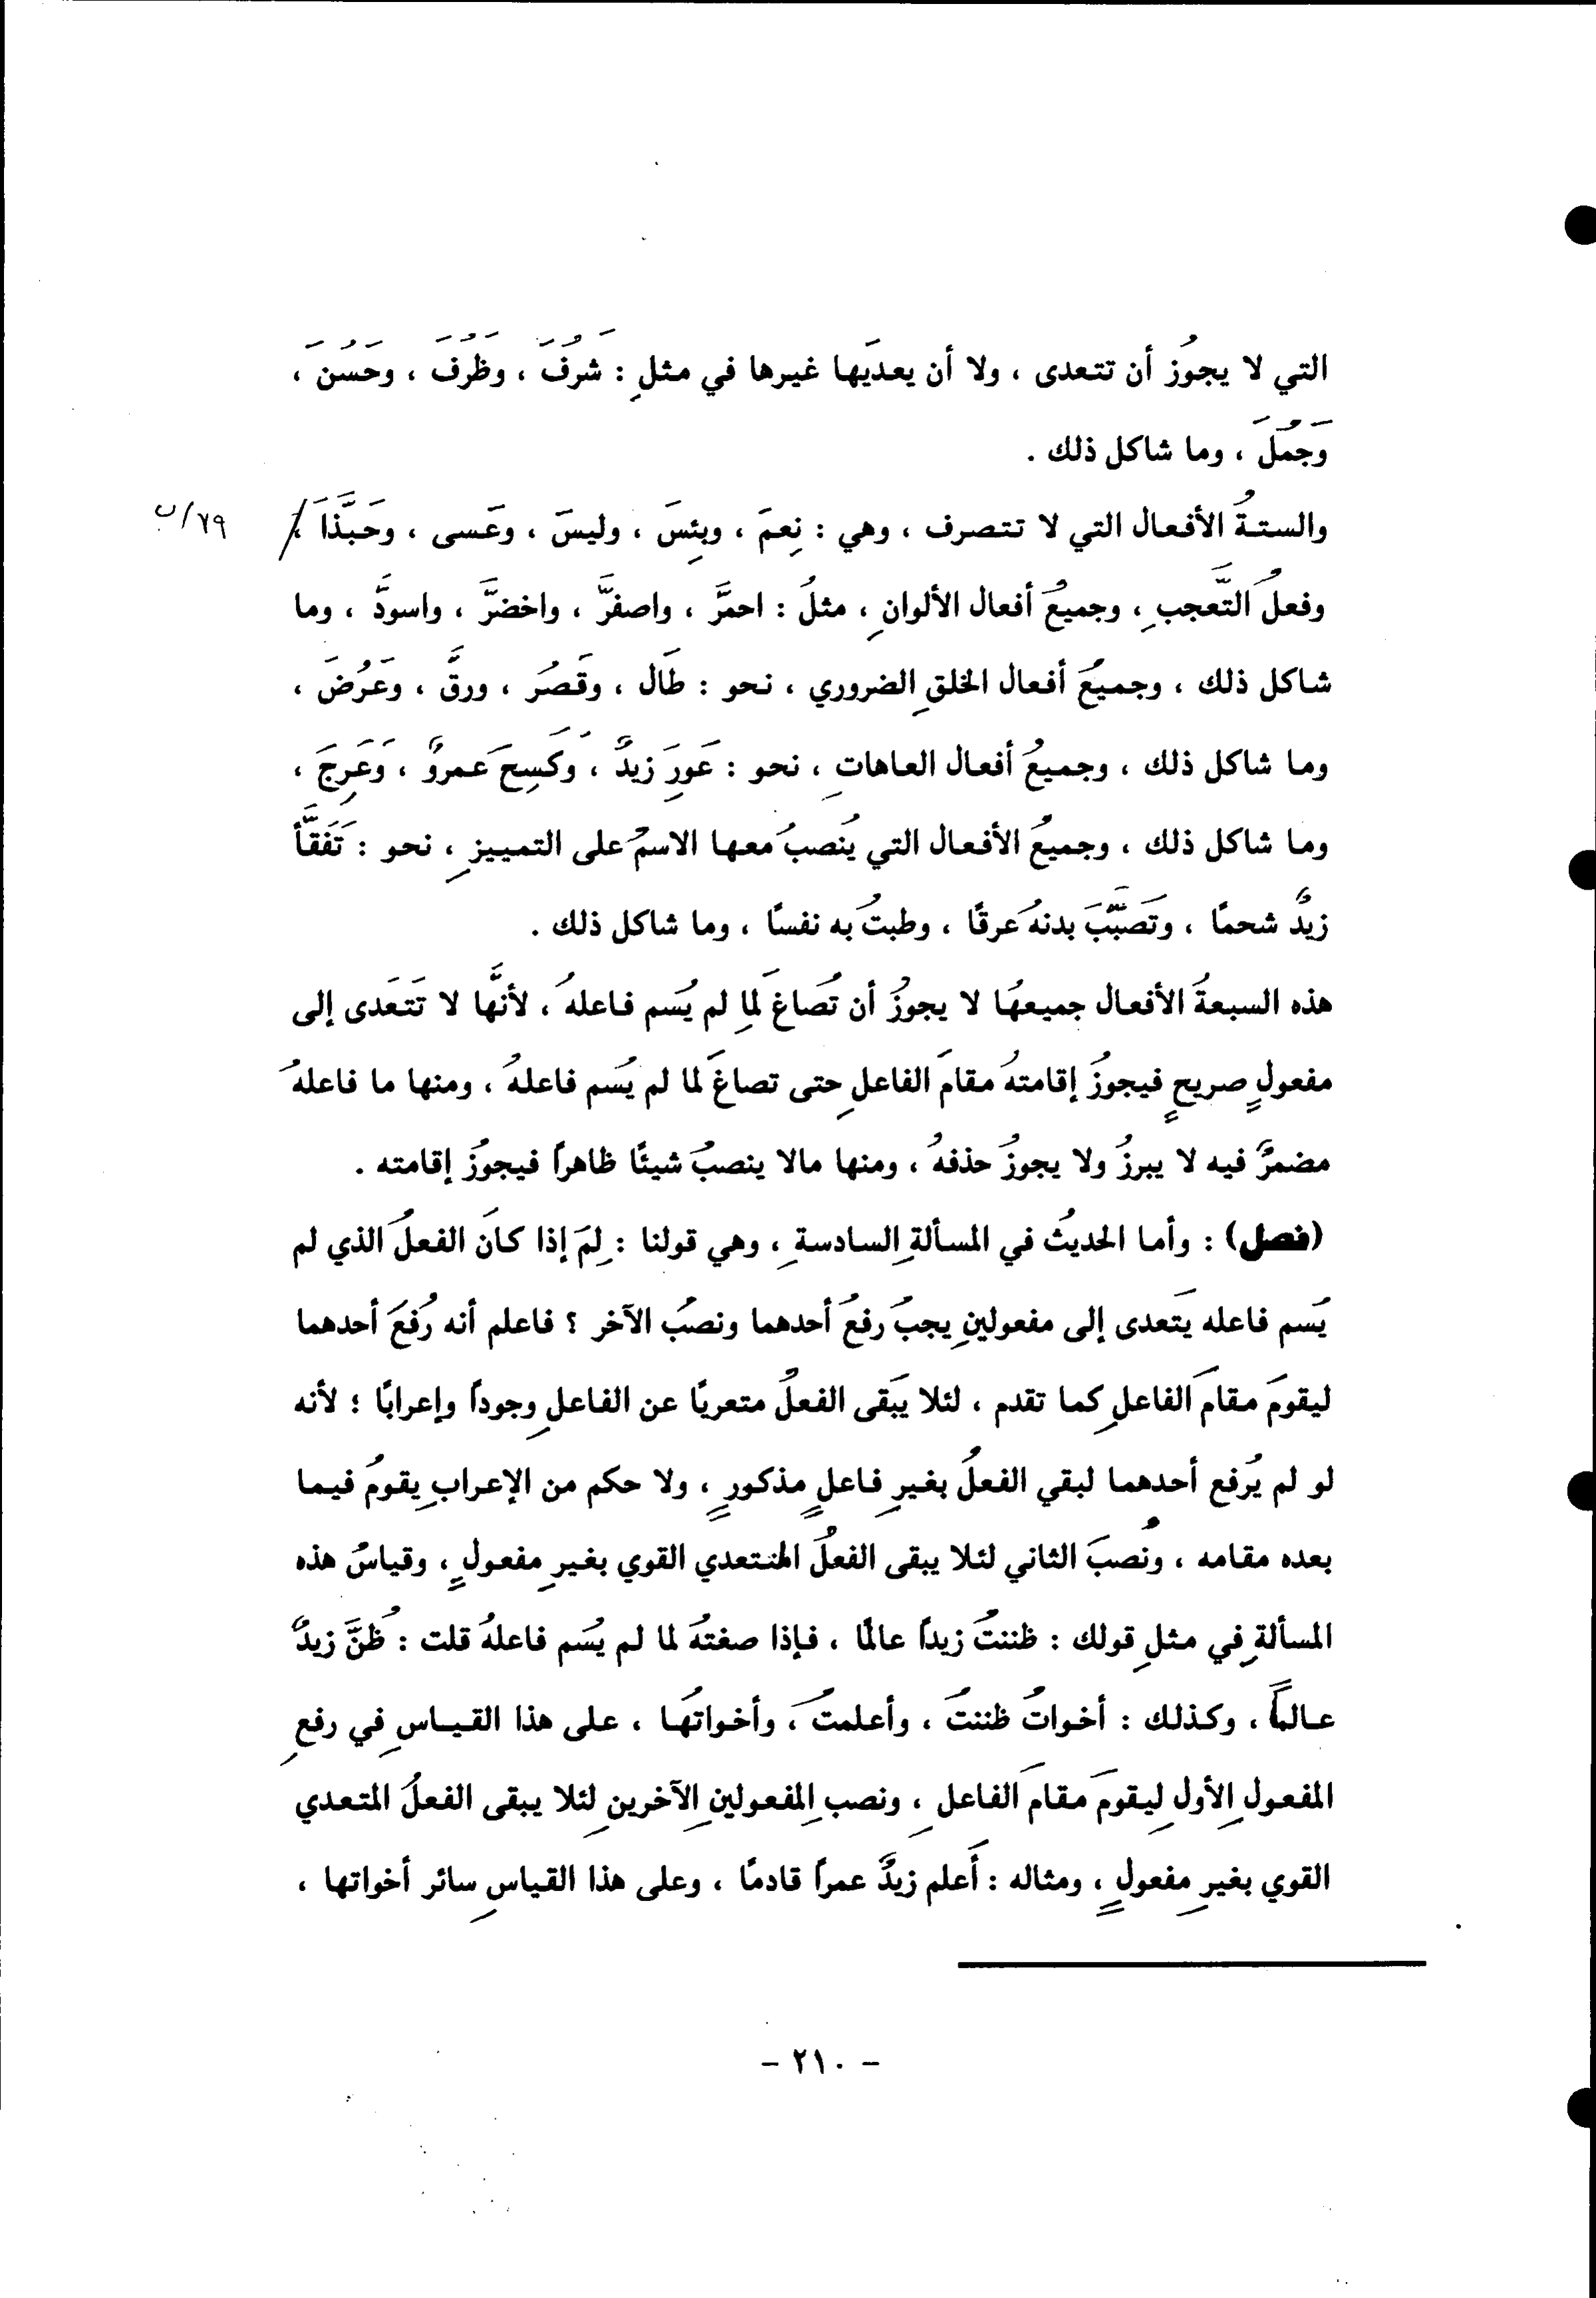 التي لا يجوُز أن تتعدى ، ولا أن يعديَها غيرها في مثلِ : شَرُفَ ، وظَرُفَ ، وحَسُنَ ،
وَجَمُلَ ، وما شاكل ذلك .
والستةُ الأفعال التي لا تتصرف ، وهي : نِعمَ ، وبِئسَ ، وليسَ ، وعَسى ، وحَبَّذَا ، /
٧٩/ب
وفعلُ التَّعجبِ ، وجميعُ أفعال الألوانِ ، مثلُ : احمرَّ ، واصفرَّ ، واخضرَّ ، واسودَّ ، وما
شاكل ذلك ، وجميعُ أفعال الخلقِ الضروري ، نحو : طَال ، وقَصُر ، ورقَّ ، وعَرُضَ ،
وما شاكل ذلك ، وجميعُ أفعال العاهاتِ ، نحو : عَورِ زيدٌ ، وَكَسِحَ عمروٌ ، وَعَرِجَ ،
وما شاكل ذلك ، وجميعُ الأفعال التي يُنصبُ معها الاسمُ على التمييزِ ، نحو : تَفَقَّأ
زيدٌ شحمًا ، وتَصَبَّبَ بدنهُ عرقًا ، وطبتُ به نفسًا ، وما شاكل ذلك .
هذه السبعةُ الأفعال جميعهُا لا يجوزُ أن تُصَاغ لمِا لم يُسَم فاعلهُ ، لأنَّها لا تَتَعَدى إلى
مفعولٍ صريحٍ فيجوزُ إقامتهُ مقامَ الفاعلِ حتى تصاغَ لما لم يُسَم فاعلهُ ، ومنها ما فاعلهُ
مضمرٌ فيه لا يبرزُ ولا يجوزُ حذفهُ ، ومنها مالا ينصبُ شيئًا ظاهراً فيجوُز إقامته .
(فصل) : وأما الحديثُ في المسألةِ السادسةِ ، وهي قولنا : لِمَ إذا كانَ الفعلُ الذي لم
يُسَم فاعله يَتعدى إلى مفعولينِ يجبُ رفعُ أحدهما ونصبُ الآخر ؟ فاعلم أنه رُفعَ أحدهما
ليقومَ مقامَ الفاعلِ كما تقدم ، لئلا يَبقى الفعلُ متعريًا عن الفاعلِ وجوداً وإعرابًا ؛ لأنه
لو لم يُرفع أحدهما لبقي الفعلُ بغيرِ فاعلٍ مذكورٍ ، ولا حكم من الإعرابِ يقومُ فيما
بعده مقامه ، ونُصبَ الثاني لئلا يبقى الفعلُ المتعدي القوي بغيرِ مفعولٍ ، وقياسُ هذه
المسألةِ في مثلِ قولك : ظننتُ زيداً عالمًا ، فإذا صغتهُ لما لم يُسَم فاعلهُ قلت : ظُنَّ زيدٌ
عالمًا ، وكذلك : أخواتُ ظننتُ ، وأعلمتُ ، وأخواتهُا ، على هذا القياسِ في رفعِ
المفعولِ الأولِ ليقومَ مقامَ الفاعلِ ، ونصبِ المفعولينِ الآخرينِ لئلا يبقى الفعلُ المتعدي
القوي بغيرِ مفعولٍ ، ومثاله : أَعلم زيدٌ عمراً قادمًا ، وعلى هذا القياسِ سائر أخواتها ،
- ٢١٠ -